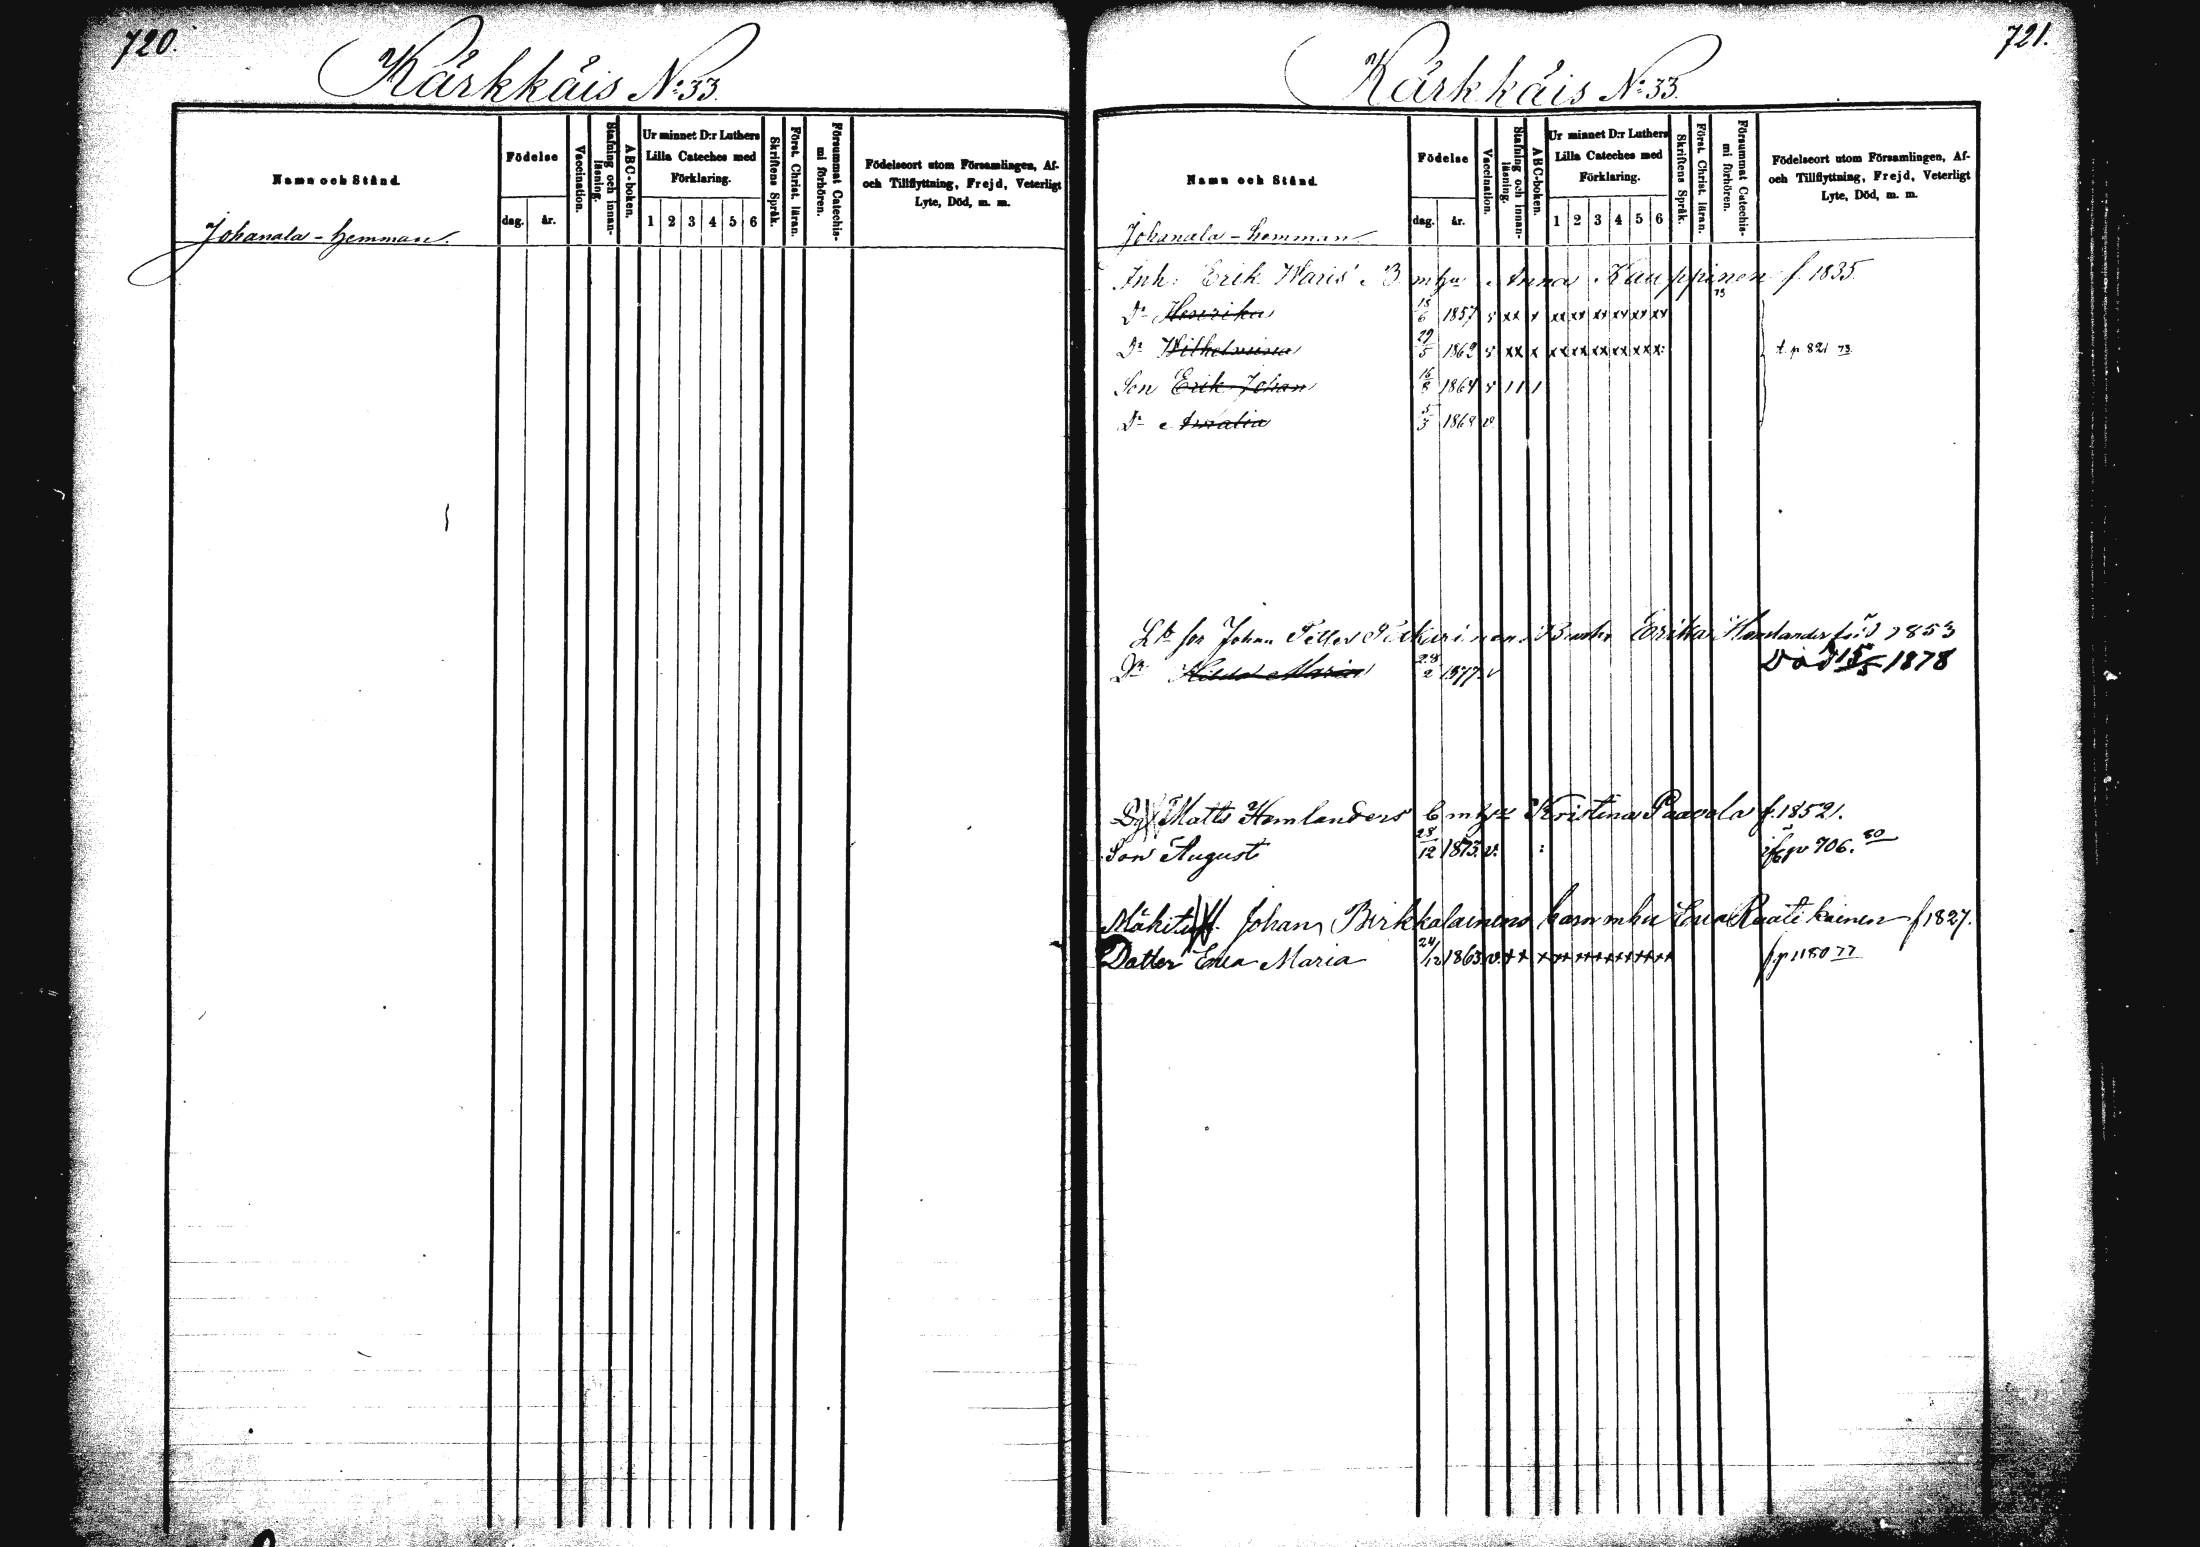 720.
Kärkkäis No: 33.
Namn och Stånd.
Födelse
dag. år.
Vaccination.
Stafning och innan-läsning.
ABC-boken.
Ur minnet D:r Luthers
Lilla Cateches med
Förklaring.
1 2 3 4 5 6
Skriftens Språk.
Först. Christ. läran.
Försummat Catechis-mi förhören.
Födelseort utom Församlingen, Af-
och Tillflyttning, Frejd, Veterligt
Lyte, Död, m. m.
Johanala - hemman.
721.
Kärkkäis No: 33.
Namn och Stånd.
Födelse
dag. år.
Vaccination.
Stafning och innan-läsning.
ABC-boken.
Ur minnet D:r Luthers
Lilla Cateches med
Förklaring.
1 2 3 4 5 6
Skriftens Språk.
Först. Christ. läran.
Försummat Catechis-mi förhören.
Födelseort utom Församlingen, Af-
och Tillflyttning, Frejd, Veterligt
Lyte, Död, m. m.
Johanala - hemman
Inh: Erik Waris' B. mhu Anna Kauppinen f. 1835.
Dr Henrika 18/6 1857 v xx x xx xx xx xx xx xx 73
Dr Wilhelmina 29/5 1862 v xx x xx xx xx xx xx x: t. p. 821 73
Son Erik Johan 16/8 1864 v 1 1 1
Dr Amalia 5/3 1868 v
Johan Petter Erika Hemlander född 1853
Dr Hilda Maria 28/2 1877. v Död 15/5 1878
Matts Hemlanders b mhu Kristina Paavola f. 1852.
Son August 28/12 1875. v. : p 706. 80
Mäkitu Johan Birkkalainens barn mhu Eva Raatikainen f 1827.
Dotter Eva Maria 24/12 1863. v. xx x xx xx xx xx xx xx f. p 1180 77